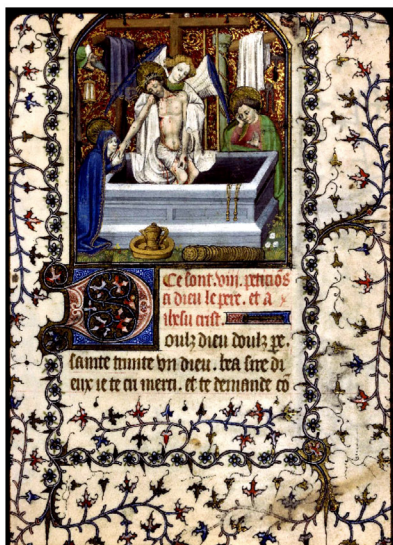 Ce sont .viii. petitiõs
a dieu le pere. et a
ihesu crist.
Doulz dieu doulz pe.
sainte trinite vn dieu. bea sire di
eux ie te cri merci. et te demande cõ